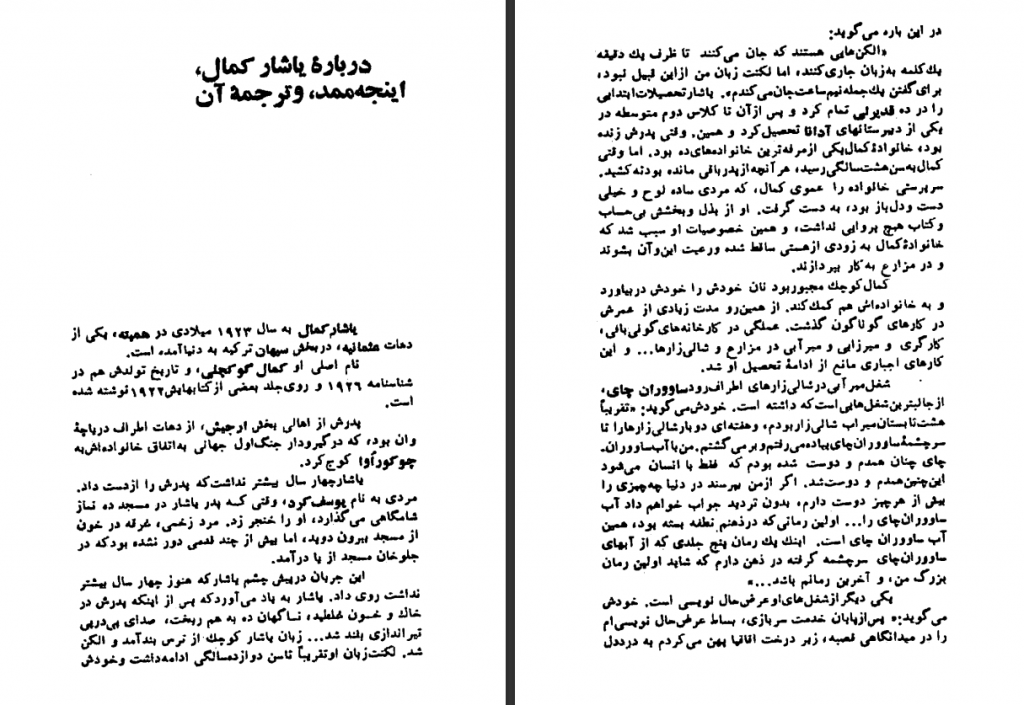 دربارهٔ یاشار کمال،
اینجه‌ممد، و ترجمهٔ آن
یاشار کمال به سال ۱۹۲۳ میلادی در همیته، یکی از
دهات عثمانیه، در بخش سیهان ترکیه به دنیا آمده است.
نام اصلی او کمال گوکچلی، و تاریخ تولدش هم در
شناسنامه ۱۹۲۶ و روی جلد بعضی از کتابهایش ۱۹۲۲ نوشته شده
است.
پدرش از اهالی بخش ارجیش، از دهات اطراف دریاچهٔ
وان بود، که در گیرودار جنگ اول جهانی به‌اتفاق خانواده‌اش به
چوکوراوا کوچ کرد.
یاشار چهار سال بیشتر نداشت که پدرش را از دست داد.
مردی به نام یوسف کرد، وقتی که پدر یاشار در مسجد ده نماز
شامگاهی می‌گذارد، او را خنجر زد. مرد زخمی، غرقه در خون
از مسجد بیرون دوید، اما بیش از چند قدمی دور نشده بود که در
جلوخان مسجد از پا درآمد.
این جریان در پیش چشم یاشار که هنوز چهار سال بیشتر
نداشت روی داد. یاشار به یاد می‌آورد که پس از اینکه پدرش در
خاك و خون غلطید، ناگهان ده به هم ریخت، صدای پی‌درپی
تیراندازی بلند شد... زبان یاشار کوچك از ترس بند آمد و الکن
شد. لکنت زبان او تقریباً تا سن دوازده سالگی ادامه داشت و خودش
در این باره می‌گوید:
«الکن‌هایی هستند که جان می‌کنند تا ظرف یك دقیقه
یك کلمه به زبان جاری کنند، اما لکنت زبان من از این قبیل نبود،
برای گفتن یك جمله نیم ساعت جان می‌کندم». یاشار تحصیلات ابتدایی
را در ده قدیرلی تمام کرد و پس از آن تا کلاس دوم متوسطه در
یکی از دبیرستانهای آدانا تحصیل کرد و همین. وقتی پدرش زنده
بود، خانوادهٔ کمال یکی از مرفه‌ترین خانواده‌های ده بود. اما وقتی
کمال به سن هشت سالگی رسید، هر آنچه از پدر باقی مانده بود ته کشید.
سرپرستی خانواده را عموی کمال، که مردی ساده لوح و خیلی
دست و دل‌باز بود، به دست گرفت. او از بذل و بخشش بی‌حساب
و کتاب هیچ پروایی نداشت، و همین خصوصیات او سبب شد که
خانوادهٔ کمال به زودی از هستی ساقط شده و رعیت این و آن بشوند
و در مزارع به کار بپردازند.
کمال کوچك مجبور بود نان خودش را خودش دربیاورد
و به خانواده‌اش هم کمك کند. از همین‌رو مدت زیادی از عمرش
در کارهای گوناگون گذشت. عملگی در کارخانه‌های گونی‌بافی،
کارگری و میرزایی و میرآبی در مزارع و شالی‌زارها... و این
کارهای اجباری مانع از ادامهٔ تحصیل او شد.
شغل میرآبی در شالی‌زارهای اطراف رود ساووران چای،
از جالبترین شغل‌هایی است که داشته است. خودش می‌گوید: «تقریباً
هشت تابستان میراب شالی‌زار بودم، و هفته‌ای دو بار شالی‌زارها را تا
سرچشمهٔ ساووران چای پیاده می‌رفتم و برمی‌گشتم. من با آب ساووران-
چای چنان همدم و دوست شده بودم که فقط با انسان می‌شود
این‌چنین همدم و دوست شد. اگر از من بپرسند در دنیا چه چیزی را
بیش از هر چیز دوست دارم، بدون تردید جواب خواهم داد آب
ساووران چای را... اولین رمانی که در ذهنم نطفه بسته بود، همین
آب ساووران چای است. اینك یك رمان پنج جلدی که از آبهای
ساووران چای سرچشمه گرفته در ذهن دارم که شاید اولین رمان
بزرگ من، و آخرین رمانم باشد...»
یکی دیگر از شغل‌های او عرض‌حال نویسی است. خودش
می‌گوید: «پس از پایان خدمت سربازی، بساط عرض‌حال نویسی‌ام
را در میدانگاهی قصبه، زیر درخت اقاقیا پهن می‌کردم به درد دل